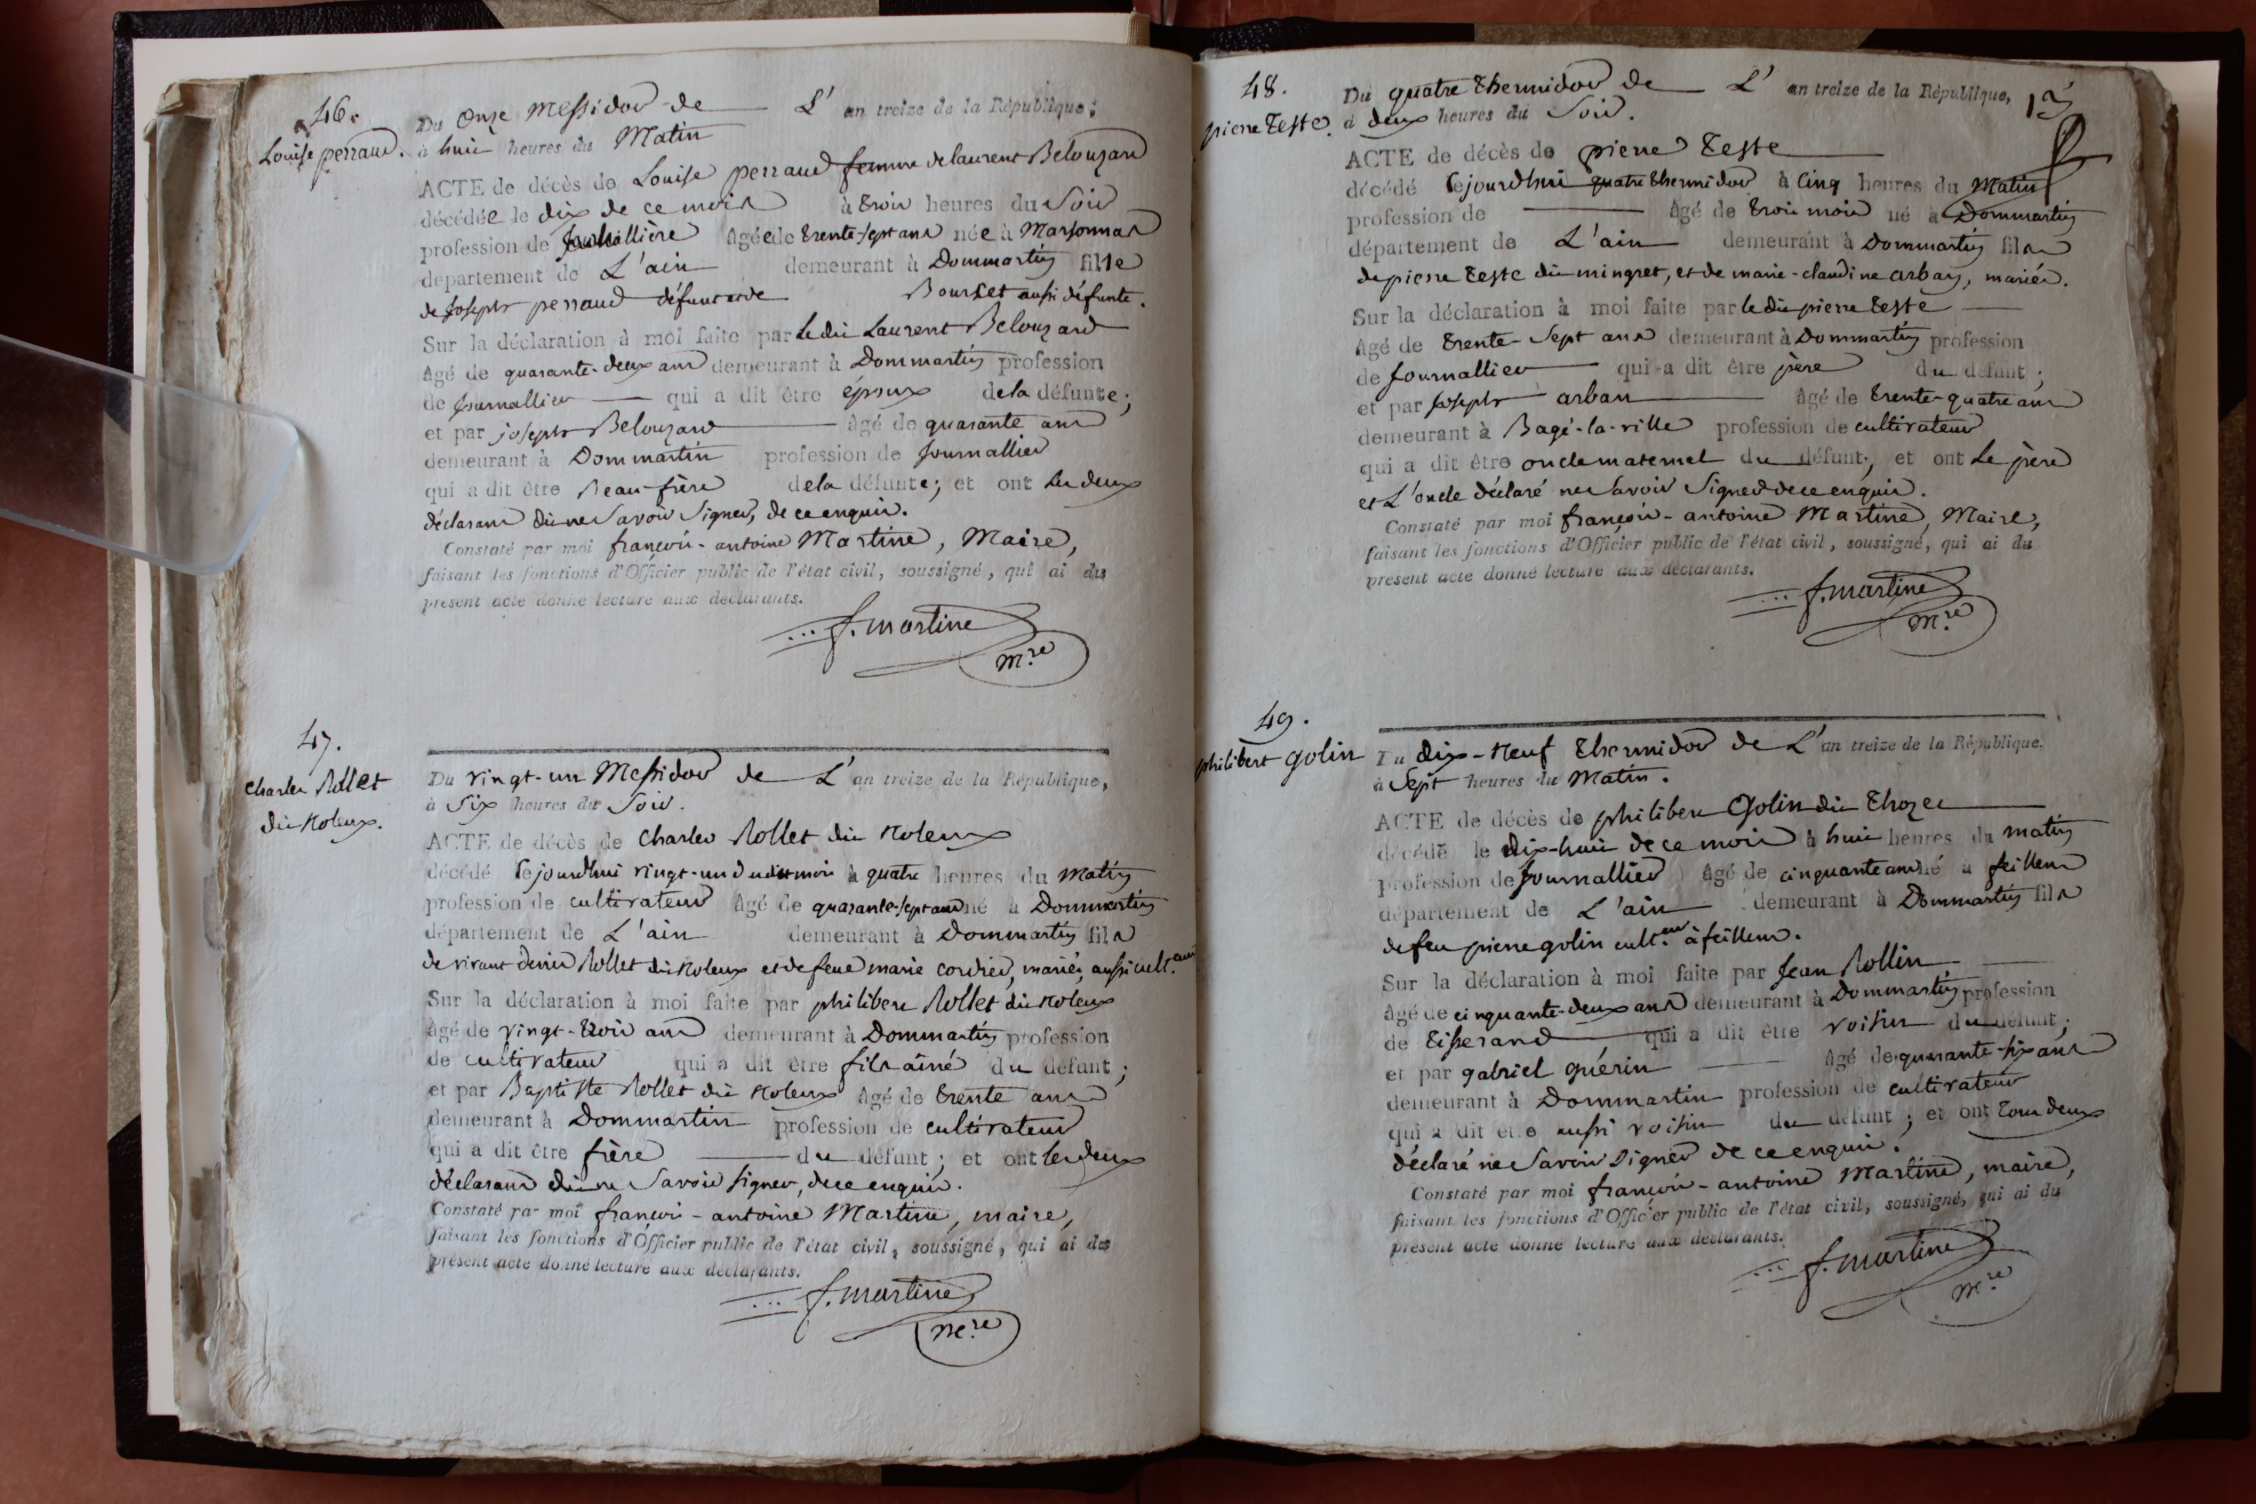 46.
Louise perraud.
Du Onze Messidor de L' an treize de la République;
à huit heures du Matin
ACTE de décès de Louise perraud femme de laurent Belouzard
décédée le dix de ce mois à trois heures du Soir
profession de âgée de trente-sept ans née à Marsonnas
département de L'ain demeurant à Dommartin fille
de Joseph perraud défunt et de Bourset aussi défunte.
Sur la déclaration à moi faite par ledit Laurent Belouzard
âgé de quarante-deux ans demeurant à Dommartin profession
de Journallier qui a dit être époux de la défunte;
et par joseph Belouzard âgé de quarante ans
demeurant à Dommartin profession de Journallier
qui a dit être Beau-frère de la défunte; et ont les deux
déclarans dit ne Savoir Signer, de ce enquis.
Constaté par moi françois-antoine Martine, Maire,
faisant les fonctions d'Officier public de l'état civil, soussigné, qui ai du
présent acte donné lecture aux déclarants.
f. martine
m.re
47.
Charles Rollet
dit Noleux.
Du vingt-un Messidor de L' an treize de la République,
à Six heures du Soir.
ACTE de décès de Charles Rollet dit Noleux
décédé cejourdhui vingt-un dudit mois à quatre heures du Matin
profession de cultivateur âgé de quarante-sept ans né à Dommartin
département de L'ain demeurant à Dommartin fils
de vivant denis Rollet dit Noleux et de feue marie cordier, mariés, aussi cult.eurs
Sur la déclaration à moi faite par philibert Rollet dit Noleux
âgé de vingt-trois ans demeurant à Dommartin profession
de cultivateur qui a dit être fils aîné du défunt;
et par Baptiste Rollet dit Noleux âgé de trente ans
demeurant à Dommartin profession de cultivateur
qui a dit être frère du défunt; et ont les deux
déclarans dit ne Savoir Signer, de ce enquis.
Constaté par moi françois-antoine Martine, maire,
faisant les fonctions d'Officier public de l'état civil, soussigné, qui ai du
présent acte donné lecture aux déclarants.
f. martine
m.re
48.
pierre Teste.
13
Du quatre thermidor de L' an treize de la République,
à deux heures du Soir.
ACTE de décès de pierre Teste
décédé cejourdhui quatre thermidor à Cinq heures du Matin
profession de âgé de trois mois né à Dommartin
département de L'ain demeurant à Dommartin fils
de pierre Teste dit mingret, et de marie-claudine arban, mariés.
Sur la déclaration à moi faite par ledit pierre Teste
âgé de trente-Sept ans demeurant à Dommartin profession
de Journallier qui a dit être père du défunt;
et par Joseph arban âgé de trente-quatre ans
demeurant à Bagé-la-ville profession de cultivateur
qui a dit être oncle maternel du défunt; et ont Le père
et L'oncle déclaré ne Savoir Signer de ce enquis.
Constaté par moi françois-antoine Martine, Maire,
faisant les fonctions d'Officier public de l'état civil, soussigné, qui ai du
présent acte donné lecture aux déclarants.
f. martine
m.re
49.
philibert golin
Du dix-Neuf thermidor de L' an treize de la République.
à Sept heures du Matin.
ACTE de décès de philibert Golin dit Thozet
décédé le dix-huit de ce mois à huit heures du matin
profession de Journallier âgé de cinquante ans né à feillens
département de L'ain demeurant à Dommartin fils
de feu pierre golin cult.eur à feillens.
Sur la déclaration à moi faite par Jean Rollin
âgé de cinquante-deux ans demeurant à Dommartin profession
de Tisserand qui a dit être voisin du défunt;
et par gabriel guérin âgé de quarante-six ans
demeurant à Dommartin profession de cultivateur
qui a dit être aussi voisin du défunt; et ont tous deux
déclaré ne Savoir Signer de ce enquis.
Constaté par moi françois-antoine Martine, maire,
faisant les fonctions d'Officier public de l'état civil, soussigné, qui ai du
présent acte donné lecture aux déclarants.
f. martine
m.re